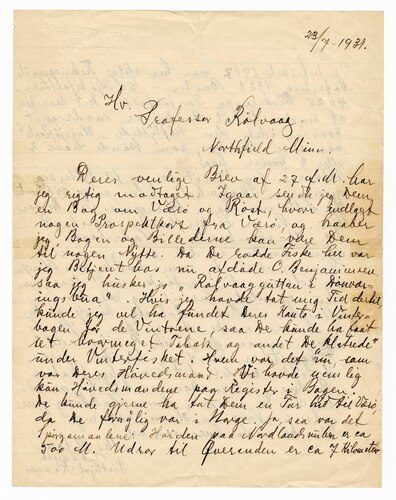 23/7-1931.
Hr. Professor Rölvaag
Northfield Minn.
Deres venlige Brev af 27 d. M. har
jeg rigtig modtaget. Igaar sendte jeg Dem
en Bog om Værö og Röst, hvori indlagt
nogen Prospektkort fra Værö, og haaber
jeg Bogen og Billederne kan være Dem
til nogen Nytte. Da De rodde Fiske her var
jeg Betjent hos nu afdöde O. Benjaminsen
saa jeg husker jo "Rölvaaggutten i
". Hvis jeg havde tat mig Tid dertil
kunde jeg vel ha fundet Deres Konto i Vinter-
bogen for de Vintrene, saa De kunde ha faat
set hvormeget Tobak og andet De
under Vinterfisket. Hvem var det nu som
var Deres Høvedsmand. Vi havde nemlig
kun Høvedsmandene paa Register i Bogen.
De kunde gjerne ha tat Dem en Tur hid til Værö
da De forøvrig var i Norge. Ja, saa var det
Spörgsmaalene: Höiden paa Nordlandsnuten er ca
500 M. Udror til Överenden er ca 7 Kilometer